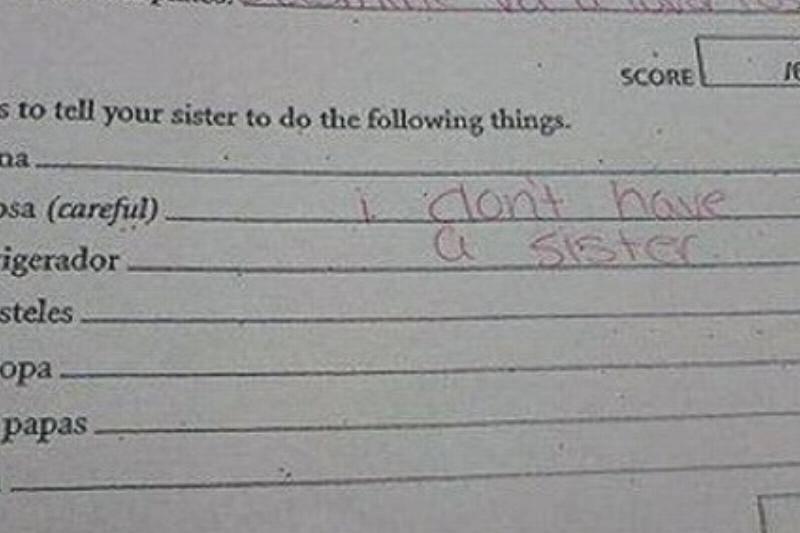 SCORE
s to tell your sister to do the following things.
na
osa (careful) i don't have
a sister
igerador
steles
opa
papas